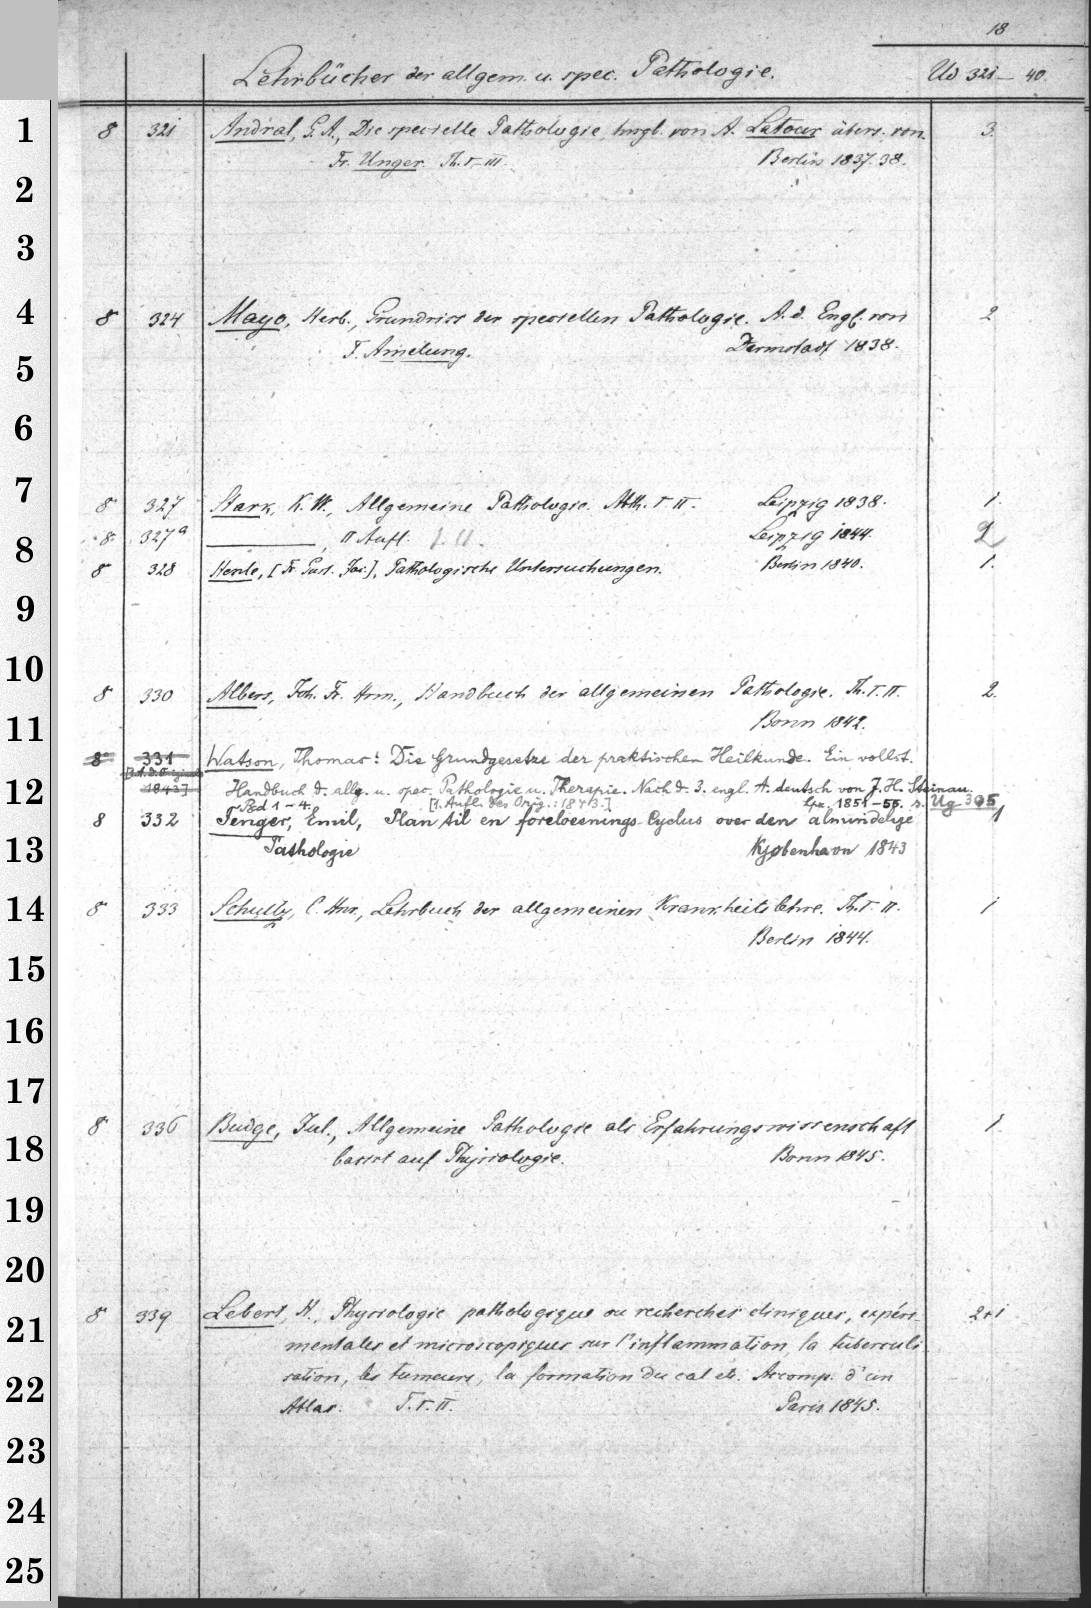 18
Lehrbücher der allgem. u. spec. Pathologie. Ud 321 – 40.
1 8 321 Andral, G. A., Die specielle Pathologie, hrsgl. von A. Latour übers. von 3.
Fr. Unger. Th. I–III. Berlin 1837. 38.
2
3
4 8 324 Mayo, Herb., Grundriss der speciellen Pathologie. A. d. Engl. von 2
F. Amelung. Darmstadt 1838.
5
6
7 8 327 Stark, K. W., Allgemeine Pathologie. Abth. I. II. Leipzig 1838. 1.
8 8 327a ———, II Aufl. I. II. Leipzig 1844. 2
8 328 Henle, [Fr. Gust. Jac.], Pathologische Untersuchungen. Berlin 1840. 1.
9
10
8 330 Albers, Joh. Fr. Hrm., Handbuch der allgemeinen Pathologie. Th. I. II. 2.
11 Bonn 1842.
8 331 Watson, Thomas: Die Grundgesetze der praktischen Heilkunde. Ein vollst.
[1. A. d. Originals
12 1843] Handbuch d. allg. u. spec. Pathologie u. Therapie. Nach d. 3. engl. A. deutsch von J. H. Steinau.
Bd 1–4. [1. Aufl. des Orig.: 1843.] Lpz. 1851–55. s. Ug 305
8 332 Fenger, Emil, Plan til en forelæsnings-Cyclus over den almindelige 1
13 Pathologie Kjøbenhavn 1843
14 8 333 Schultz, C. Hnr., Lehrbuch der allgemeinen Krankheitslehre. Th. I. II. 1
Berlin 1844.
15
16
17
8 336 Budge, Jul., Allgemeine Pathologie als Erfahrungswissenschaft 1.
18 basirt auf Physiologie. Bonn 1845.
19
20
8 339 Lebert, H., Physiologie pathologique ou recherches cliniques, expéri- 2+1
21 mentales et microscopiques sur l'inflammation, la tuberculi-
22 sation, les tumeurs, la formation du cal etc. Accomp. d'un
Atlas. T. I. II. Paris 1845.
23
24
25